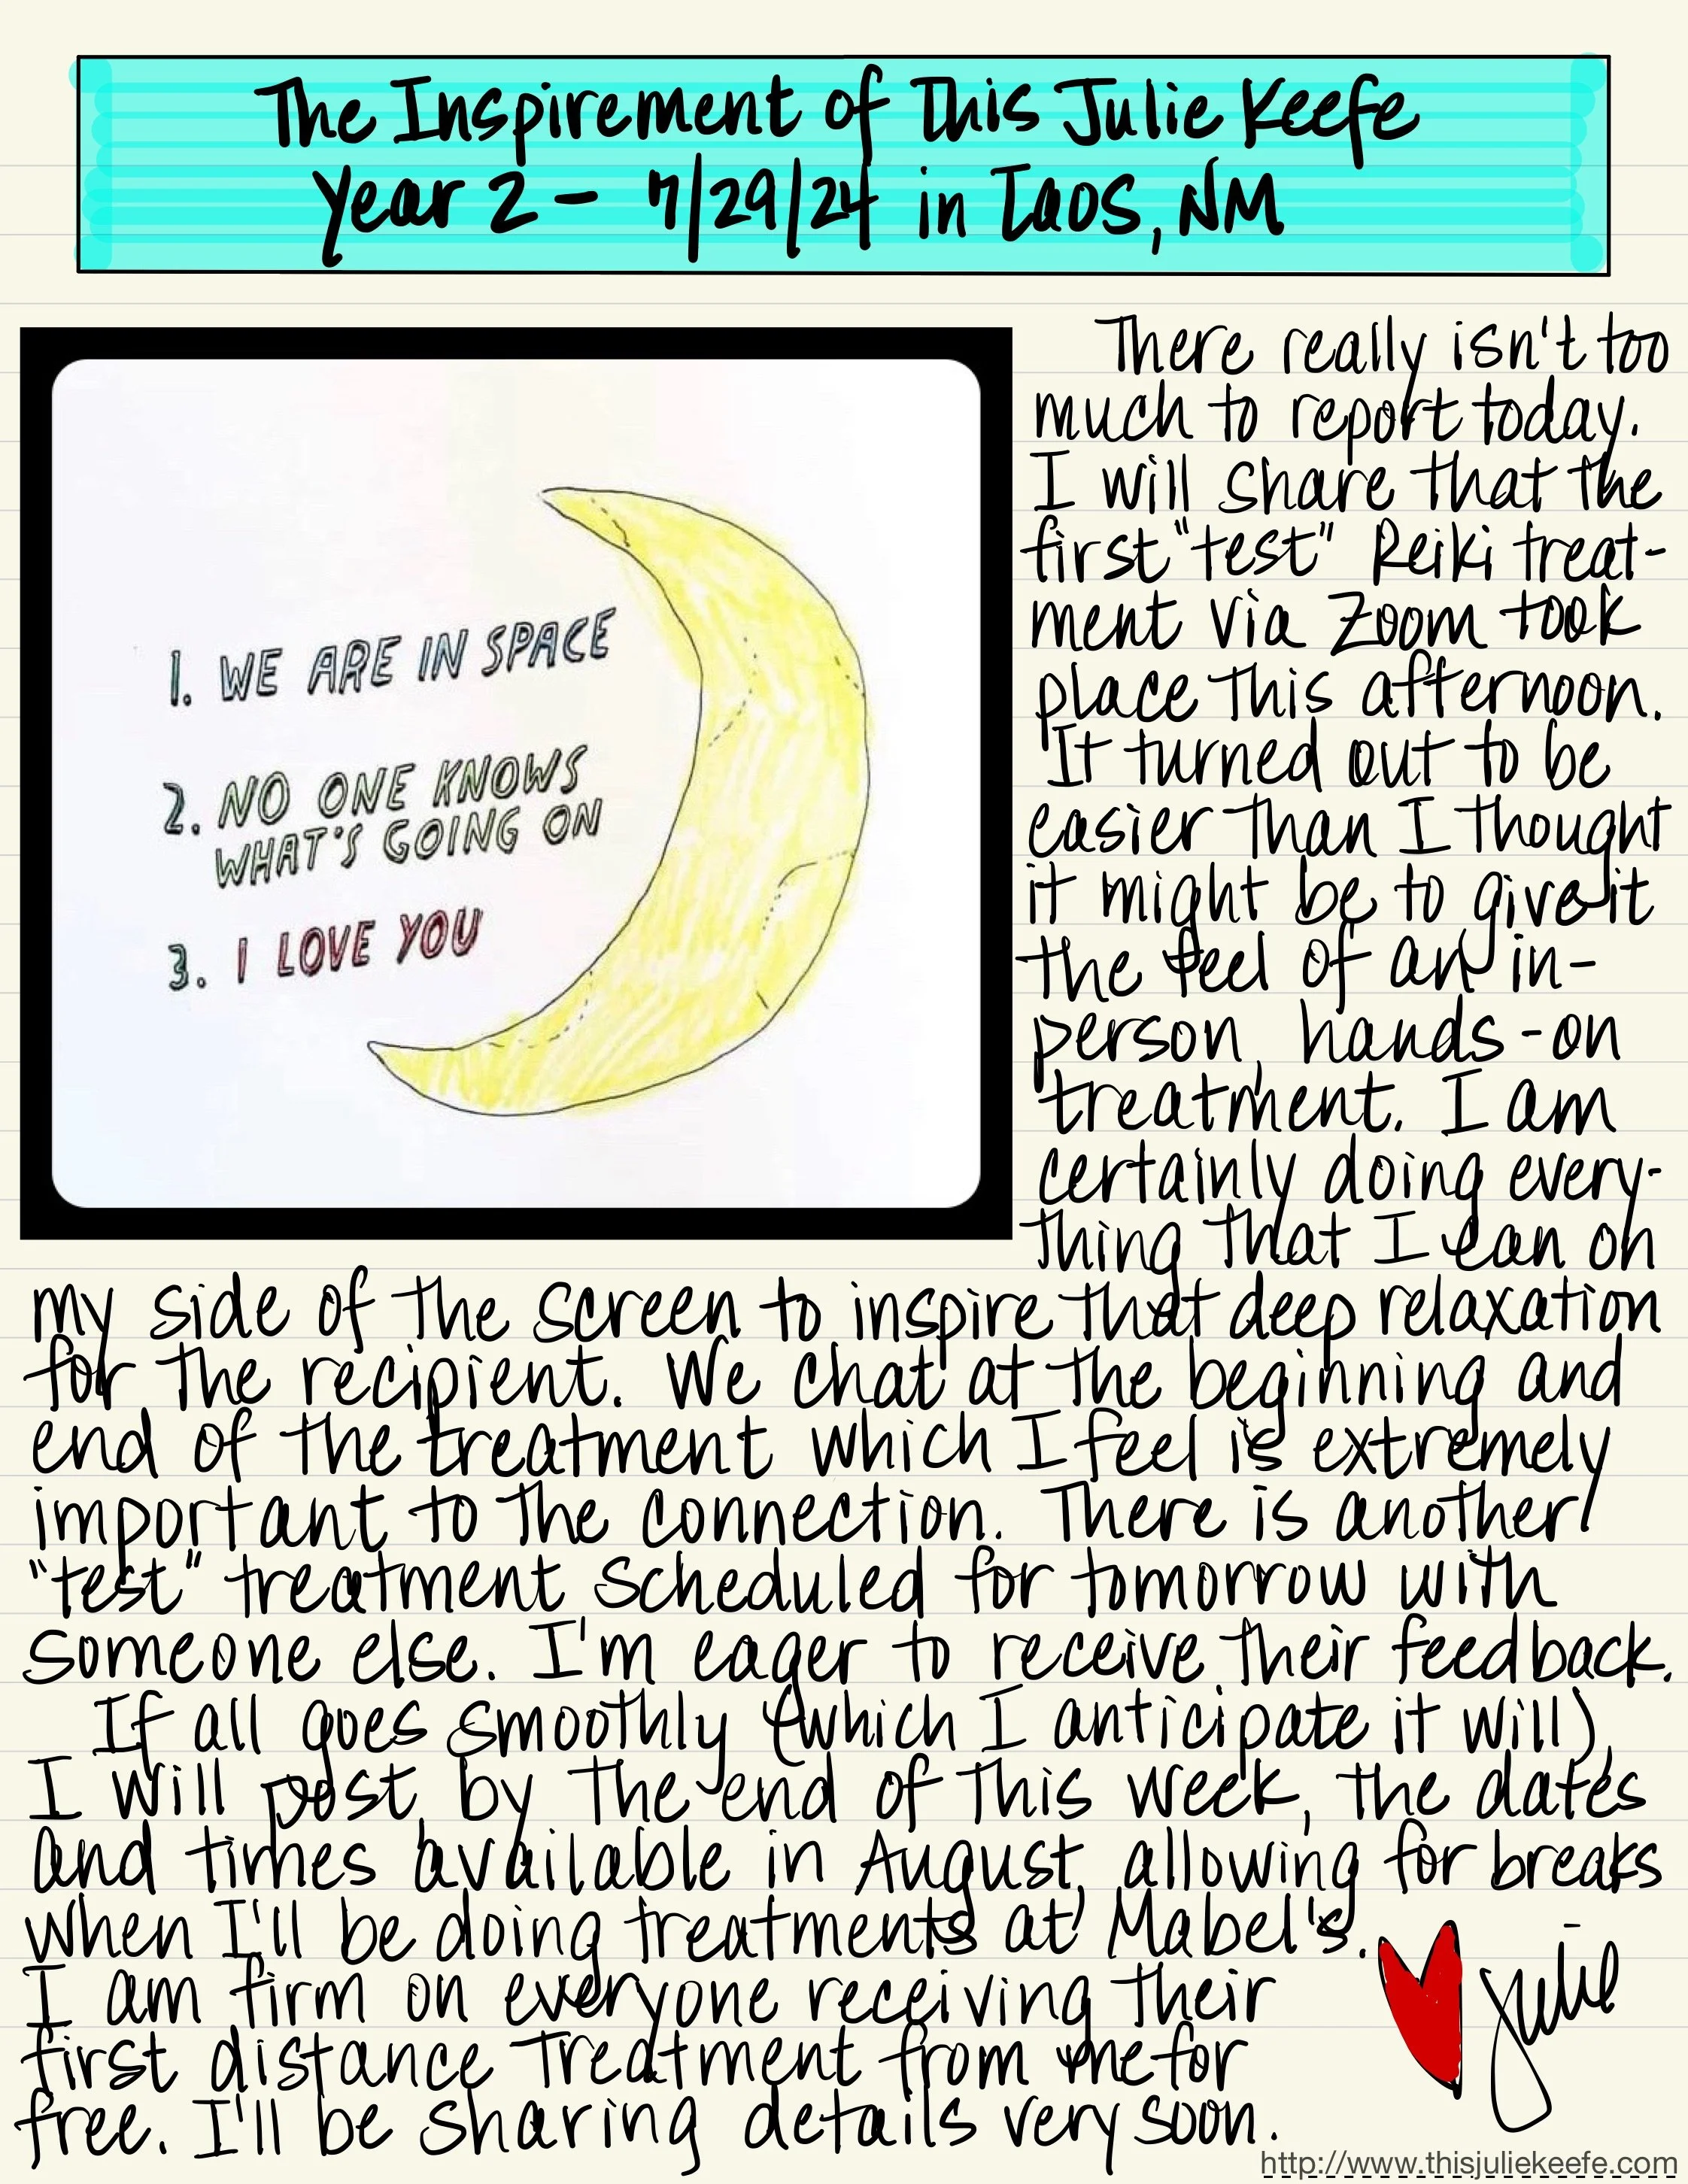 The Inspirement of This Julie Keefe
Year 2 - 7/29/24 in Taos, NM
1. WE ARE IN SPACE
2. NO ONE KNOWS
WHAT'S GOING ON
3. I LOVE YOU
There really isn't too
much to report today.
I will share that the
first "test" Reiki treat-
ment via Zoom took
place this afternoon.
It turned out to be
easier than I thought
it might be to give it
the feel of an in-
person, hands-on
treatment. I am
certainly doing every-
thing that I can on
my side of the screen to inspire that deep relaxation
for the recipient. We chat at the beginning and
end of the treatment which I feel is extremely
important to the connection. There is another
"test" treatment scheduled for tomorrow with
someone else. I'm eager to receive their feedback.
If all goes smoothly (which I anticipate it will),
I will post, by the end of this week, the dates
and times available in August, allowing for breaks
when I'll be doing treatments at Mabel's.
I am firm on everyone receiving their
first distance treatment from me for
free. I'll be sharing details very soon.
Julie
http://www.thisjuliekeefe.com